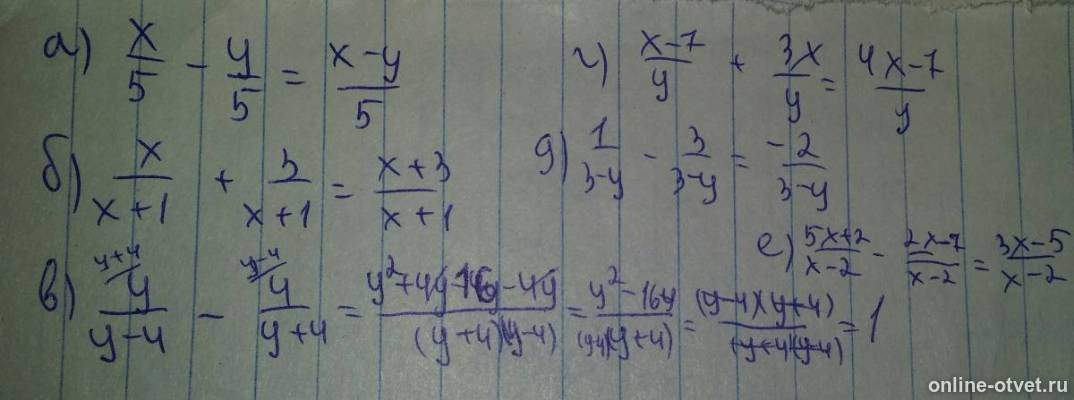 а) x/5 - y/5 = x-y/5
г) x-7/y + 3x/y = 4x-7/y
б) x/x+1 + 3/x+1 = x+3/x+1
д) 1/3-y - 3/3-y = -2/3-y
е) 5x+2/x-2 - 2x-7/x-2 = 3x-5/x-2
в) y+4 y/y-4 - y-4 y/y+4 = y²+4y-16y-4y/(y+4)(y-4) = y²-16y/(y4)(y+4) = (y-4)(y+4)/(y+4)(y-4) = 1
online-otvet.ru